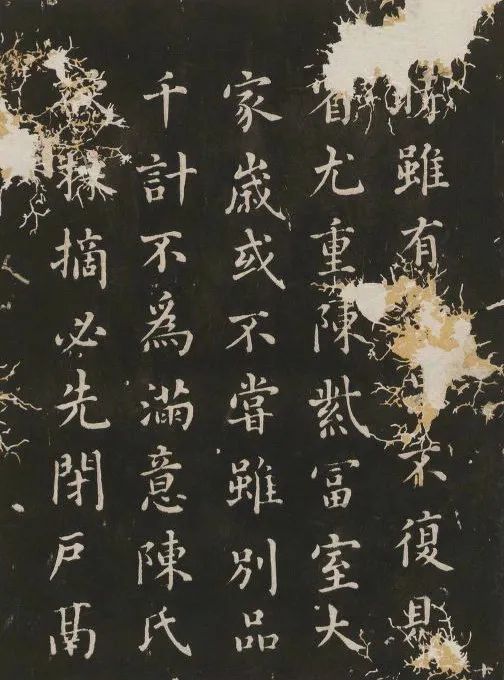 雖有復見
省尤重陳紫冨室大
家歲或不嘗雖別品
千計不爲滿意陳氏
採摘必先閉户鬲